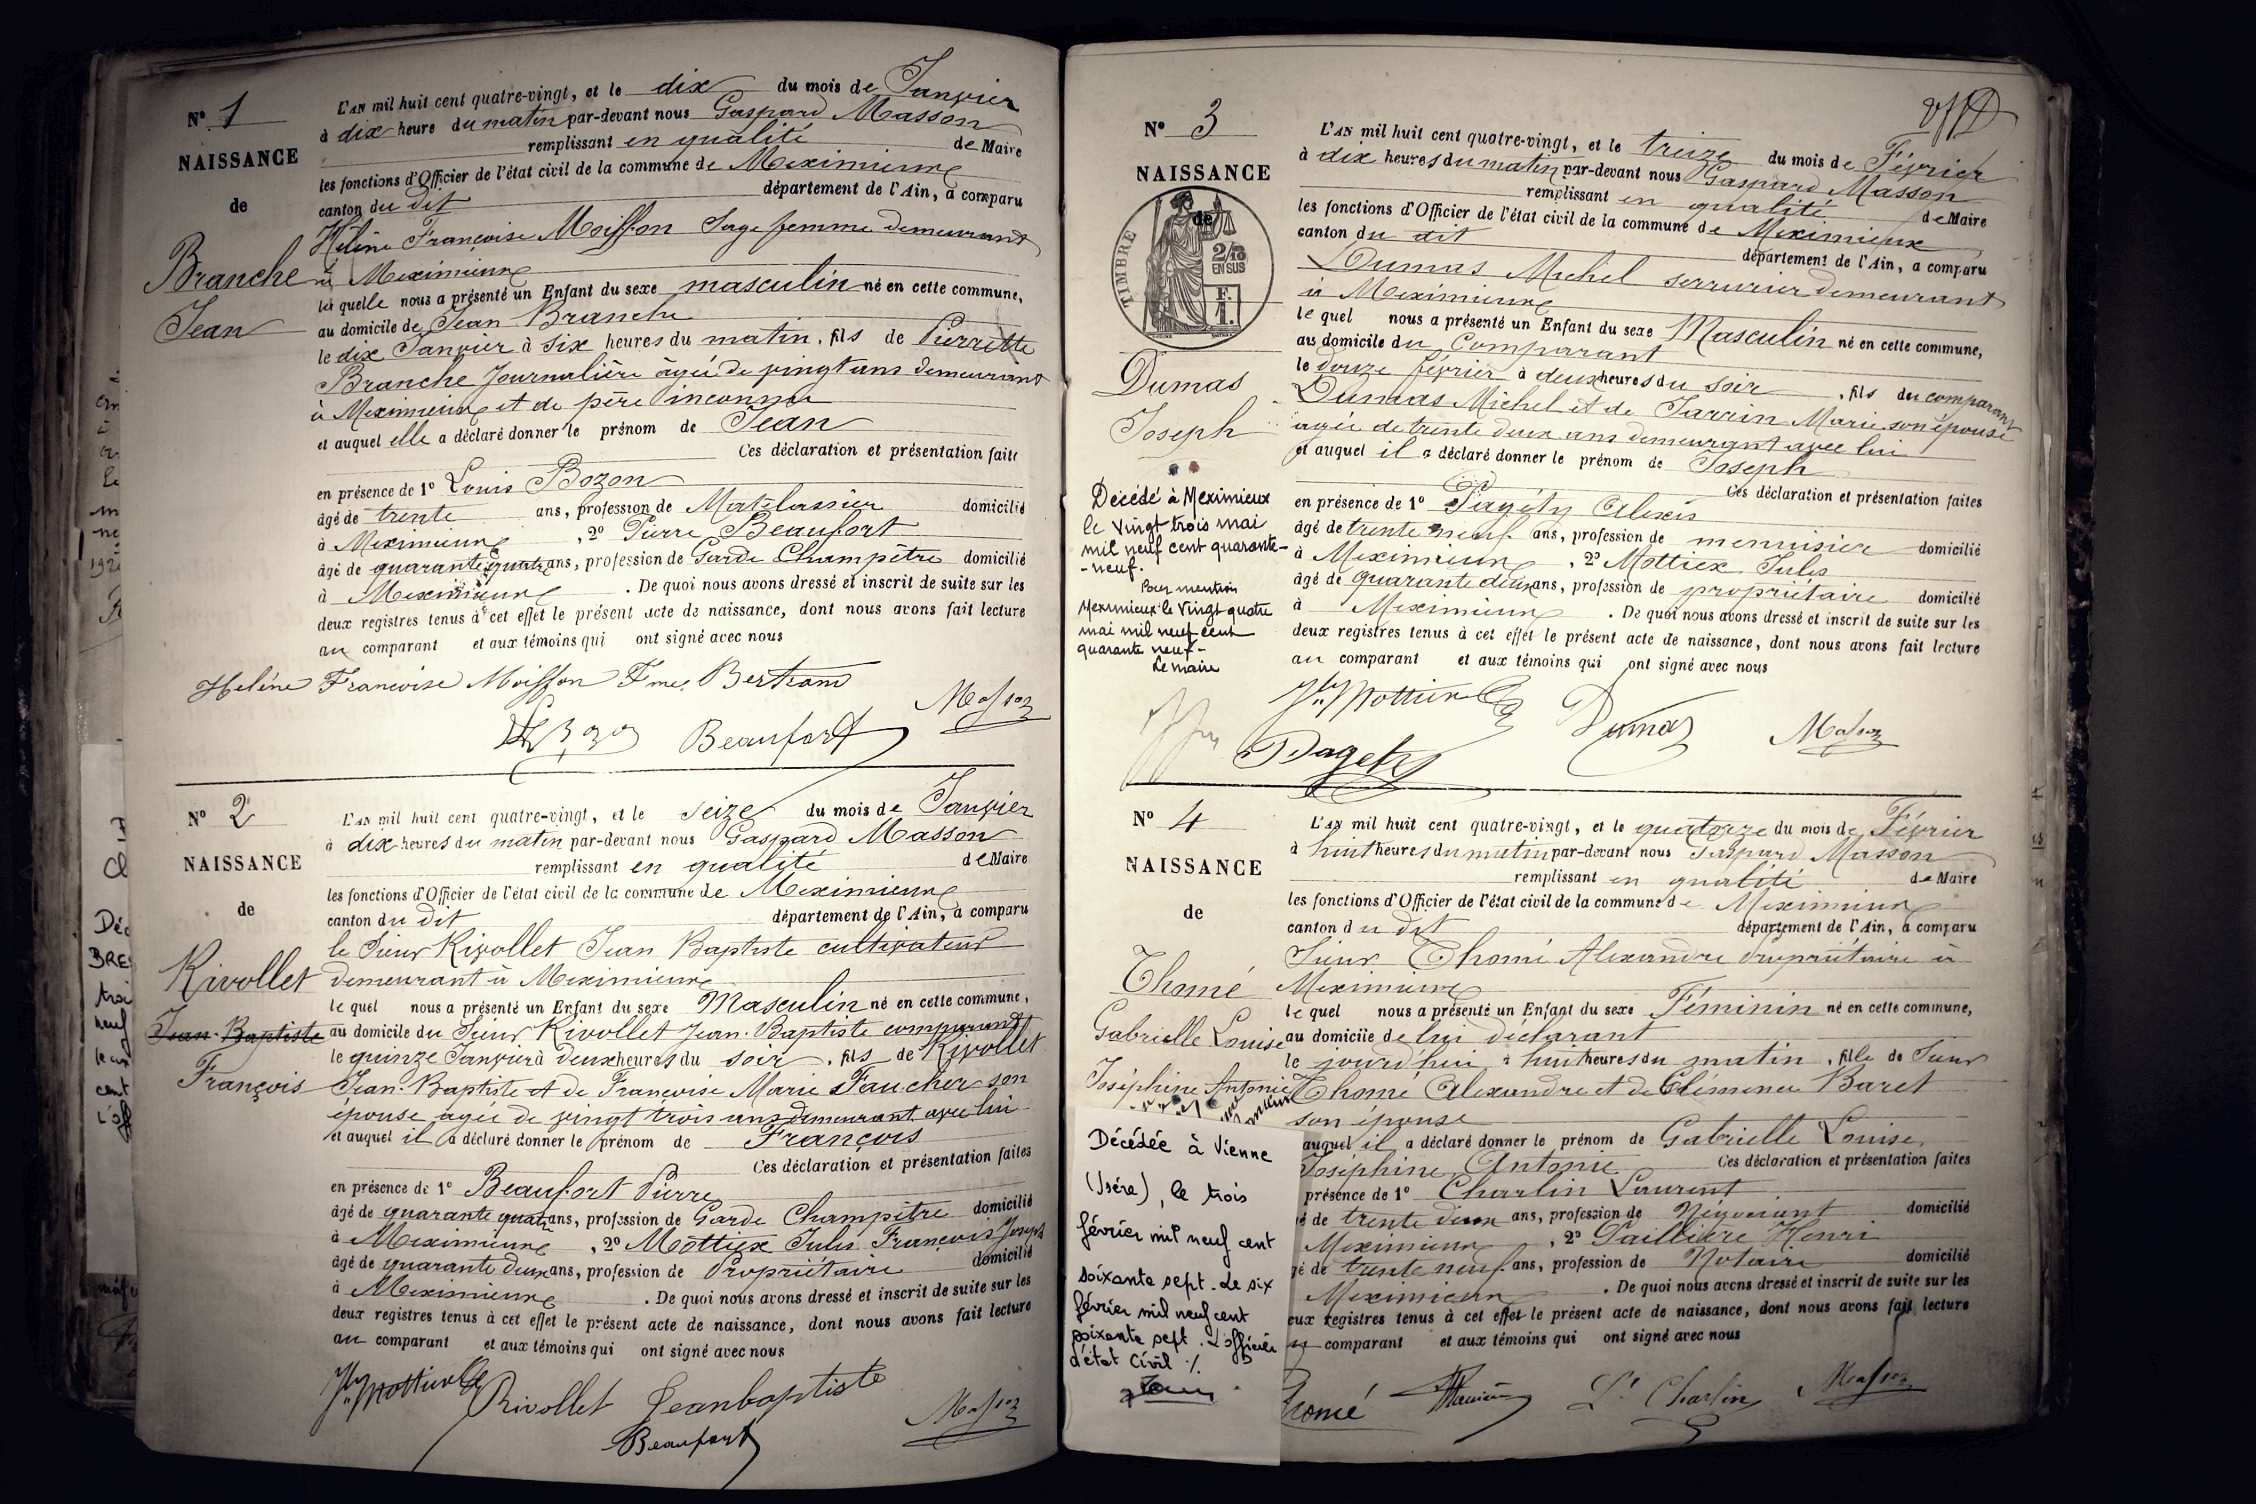 N° 1
NAISSANCE
de
Branche
Jean
L'AN mil huit cent quatre-vingt, et le dix du mois de Janvier
à dix heure du matin par-devant nous Gaspard Masson
remplissant en qualité de Maire
les fonctions d'Officier de l'état civil de la commune de Meximieux
canton du dit département de l'Ain, a comparu
Hélène Françoise Moiffon Sage femme demeurant
à Meximieux
la quelle nous a présenté un Enfant du sexe masculin né en cette commune,
au domicile de Jean Branche
le dix Janvier à six heures du matin, fils de Pierrette
Branche Journalière âgée de vingt ans demeurant
à Meximieux et de père inconnu
et auquel elle a déclaré donner le prénom de Jean
Ces déclaration et présentation faites
en présence de 1° Louis Bozon
âgé de trente ans, profession de Matelassier domicilié
à Meximieux, 2° Pierre Beaufort
âgé de quarante quatre ans, profession de Garde Champêtre domicilié
à Meximieux. De quoi nous avons dressé et inscrit de suite sur les
deux registres tenus à cet effet le présent acte de naissance, dont nous avons fait lecture
au comparant et aux témoins qui ont signé avec nous
Heléne Francoise Moiffon Fme Bertrand
Masson
Beaufort
N° 2
NAISSANCE
de
Rivollet
Jean-Baptiste
François
L'AN mil huit cent quatre-vingt, et le seize du mois de Janvier
à dix heures du matin par-devant nous Gaspard Masson
remplissant en qualité de Maire
les fonctions d'Officier de l'état civil de la commune de Meximieux
canton du dit département de l'Ain, a comparu
le Sieur Rivollet Jean Baptiste cultivateur
demeurant à Meximieux
le quel nous a présenté un Enfant du sexe Masculin né en cette commune,
au domicile du Sieur Rivollet Jean-Baptiste comparant
le quinze Janvier à deux heures du soir, fils de Rivollet
Jean-Baptiste et de Françoise Marie Faucher son
épouse agée de vingt trois ans demeurant avec lui
et auquel il a déclaré donner le prénom de François
Ces déclaration et présentation faites
en présence de 1° Beaufort Pierre
âgé de quarante quatre ans, profession de Garde Champêtre domicilié
à Meximieux, 2° Mottiex Jules François Joseph
âgé de quarante deux ans, profession de Propriétaire domicilié
à Meximieux. De quoi nous avons dressé et inscrit de suite sur les
deux registres tenus à cet effet le présent acte de naissance, dont nous avons fait lecture
au comparant et aux témoins qui ont signé avec nous
Rivollet Jeanbaptiste
Masson
Beaufort
N° 3
NAISSANCE
de
TIMBRE
2/10
EN SUS
F.
1.
Dumas
Joseph
Décédé à Meximieux
le vingt trois mai
mil neuf cent quarante-
-neuf.
Pour mention
Meximieux le vingt quatre
mai mil neuf cent
quarante neuf-
Le maire
L'AN mil huit cent quatre-vingt, et le treize du mois de Février
à dix heures du matin par-devant nous Gaspard Masson
remplissant en qualité de Maire
les fonctions d'Officier de l'état civil de la commune de Meximieux
canton du dit département de l'Ain, a comparu
Dumas Michel serrurier demeurant
à Meximieux
le quel nous a présenté un Enfant du sexe Masculin né en cette commune,
au domicile du Comparant
le douze février à deux heures du soir, fils du comparant
Dumas Michel et de Jarrin Marie son épouse
agée de trente deux ans demeurant avec lui
et auquel il a déclaré donner le prénom de Joseph
Ces déclaration et présentation faites
en présence de 1° Pagéty Alexis
âgé de trente neuf ans, profession de menuisier domicilié
à Meximieux, 2° Mottiex Jules
âgé de quarante deux ans, profession de propriétaire domicilié
à Meximieux. De quoi nous avons dressé et inscrit de suite sur les
deux registres tenus à cet effet le présent acte de naissance, dont nous avons fait lecture
au comparant et aux témoins qui ont signé avec nous
Dumas
Masson
N° 4
NAISSANCE
de
Thomé
Gabrielle Louise
Joséphine Antonie
Décédée à Vienne
(Isére), le trois
février mil neuf cent
soixante sept. Le six
février mil neuf cent
soixante sept. L'officier
d'état civil ./.
L'AN mil huit cent quatre-vingt, et le quatorze du mois de Février
à huit heures du matin par-devant nous Gaspard Masson
remplissant en qualité de Maire
les fonctions d'Officier de l'état civil de la commune de Meximieux
canton du dit département de l'Ain, a comparu
Sieur Thomé Alexandre Propriétaire à
Meximieux
le quel nous a présenté un Enfant du sexe Féminin né en cette commune,
au domicile de lui déclarant
le jourd'hui à huit heures du matin, fille de Sieur
Thomé Alexandre et de Clémence Baret
son épouse
auquel il a déclaré donner le prénom de Gabrielle Louise
Joséphine Antonie Ces déclaration et présentation faites
présence de 1° Charlin Laurent
é de trente deux ans, profession de Négociant domicilié
Meximieux, 2° Paillière Henri
gé de trente neuf ans, profession de Notaire domicilié
Meximieux. De quoi nous avons dressé et inscrit de suite sur les
eux registres tenus à cet effet le présent acte de naissance, dont nous avons fait lecture
comparant et aux témoins qui ont signé avec nous
homé
Lt Charlin
Masson